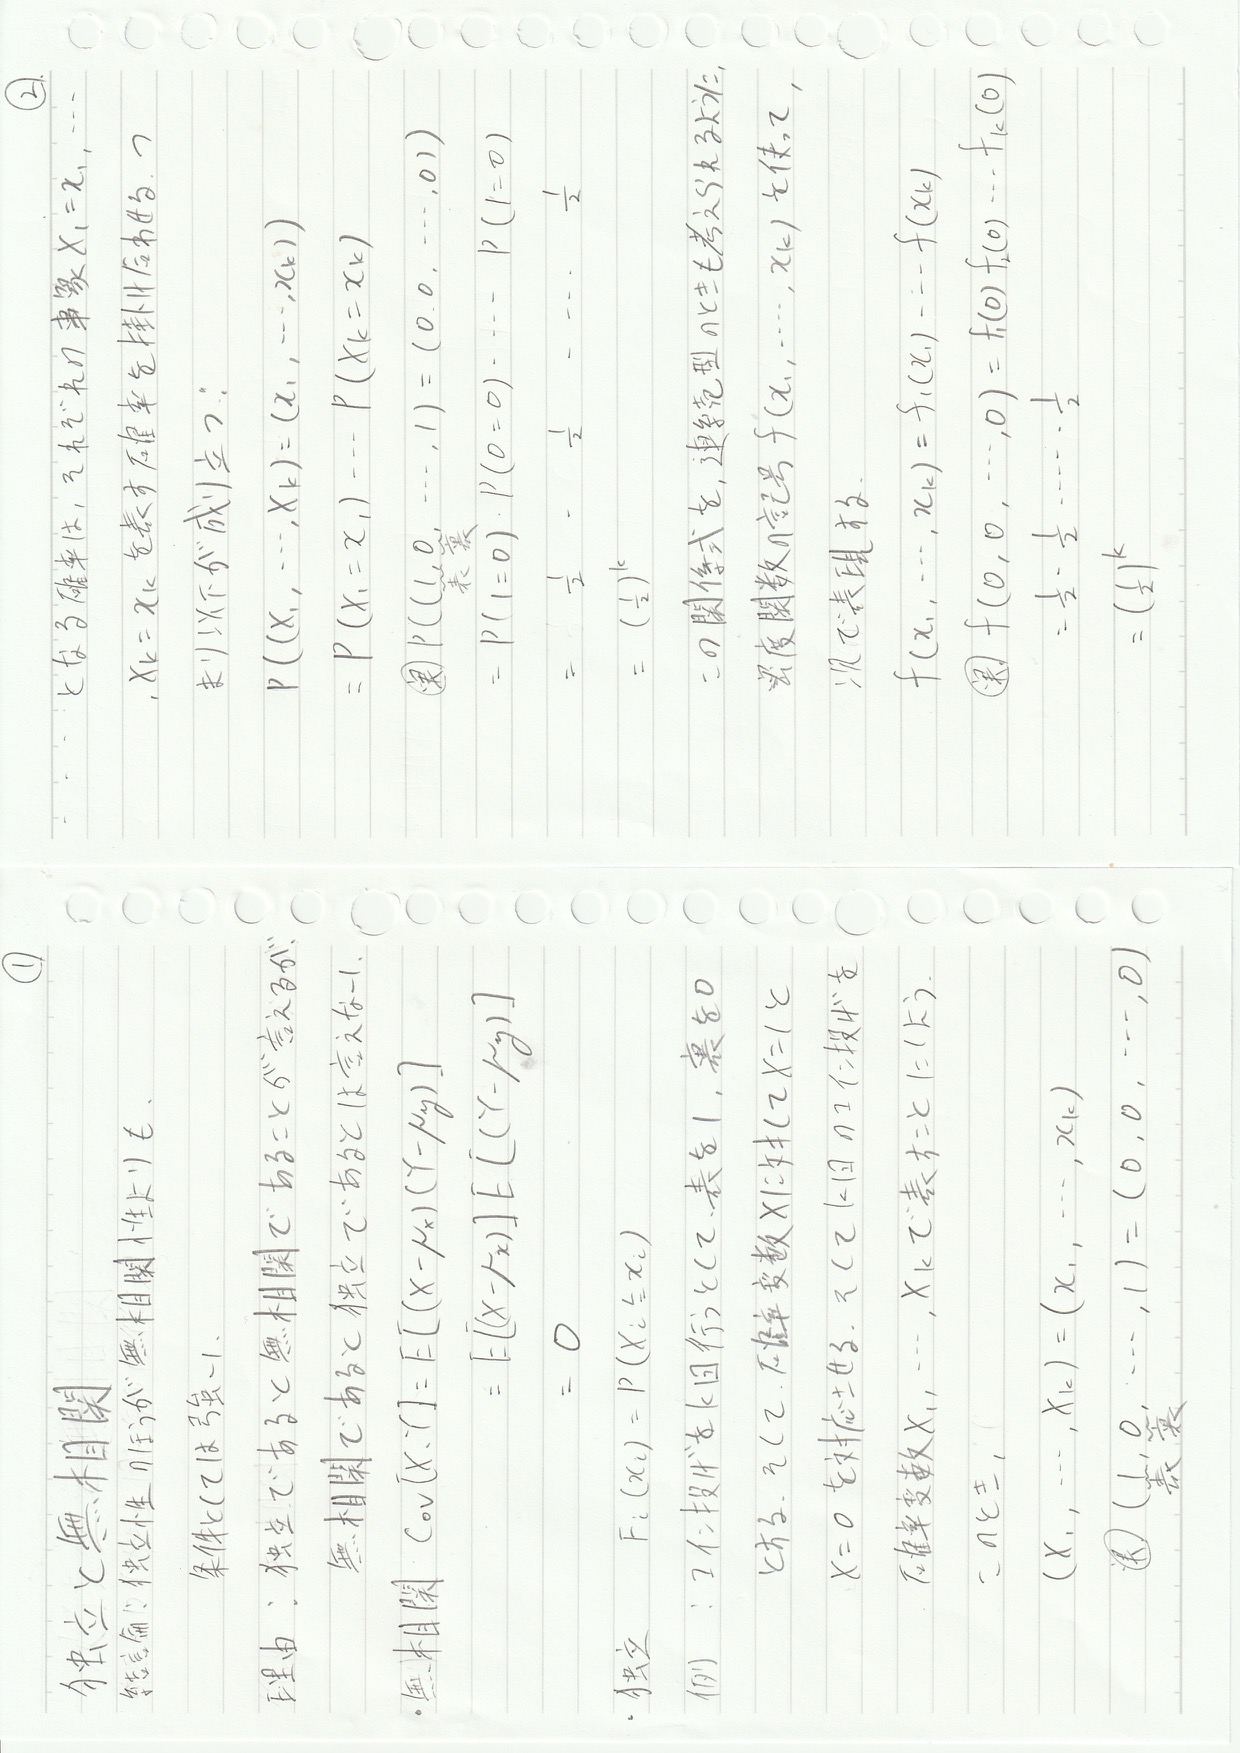 ①
独立と無相関
結論：独立性のほうが無相関性よりも、
条件としては強い.
理由：独立であると無相関であることが言えるが、
無相関であると独立であるとは言えない.
・無相関 Cov[X,Y]=E[(X-μx)(Y-μy)]
=E[(X-μx)]E[(Y-μy)]
= 0
・独立 Fi(xi)=P(Xi≦xi)
例 ：コイン投げをk回行うとして、表を1, 裏を0
とする. そして、確率変数Xに対してX=1と
X=0を対応させる. そしてk回のコイン投げを
確率変数X1, …, Xkで表すことにしよう.
このとき,
(X1, …, Xk)=(x1, …, xk)
(1, 0, …, 1)=(0, 0, …, 0)
表 裏
②
となる確率は, それぞれの事象X1=x1, …
, Xk=xkを表す確率を掛け合わせる. つ
まり以下が成り立つ：
P((X1, …, Xk)=(x1, …, xk))
=P(X1=x1) … P(Xk=xk)
P((1, 0, …, 1)=(0.0, …, 0))
表 裏
=P(1=0)・P(0=0)・… P(1=0)
= 1/2 ・ 1/2 ・… 1/2
= (1/2)^k
この関係式を, 連続型のときも考えられるように,
密度関数の記号f(x1, …, xk)を使って,
次で表現する.
f(x1, …, xk)=f1(x1) … f(xk)
f(0, 0, …, 0)=f1(0)f2(0) … fk(0)
=1/2・1/2 …・1/2
=(1/2)^k